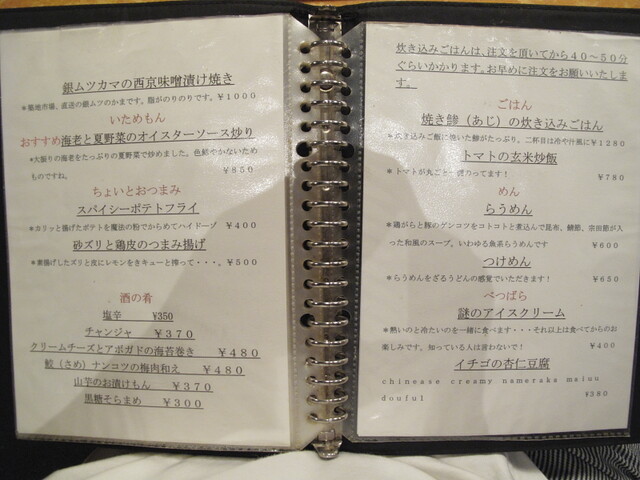 銀ムツカマの西京味噌漬け焼き
*築地市場、直送の銀ムツのかまです。脂がのりのりです。￥1000
いためもん
おすすめ海老と夏野菜のオイスターソース炒り
*大振りの海老をたっぷりの夏野菜で炒めました。色鮮やかないため
ものですね。￥850
ちょいとおつまみ
スパイシーポテトフライ
*カリッと揚げたポテトを魔法の粉でからめてハイドーゾ ￥400
砂ズリと鶏皮のつまみ揚げ
*素揚げしたズリと皮にレモンをきキューと搾って・・・。￥500
酒の肴
塩辛 ¥350
チャンジャ ￥370
クリームチーズとアボガドの海苔巻き ￥480
鮫（さめ）ナンコツの梅肉和え ￥480
山芋のお漬けもん ￥370
黒糖そらまめ ￥300
炊き込みごはんは、注文を頂いてから40～50分
ぐらいかかります。お早めに注文をお願いいたしま
す。
ごはん
焼き鯵（あじ）の炊き込みごはん
*炊き込みご飯に焼いた鯵がたっぷり、二杯目は冷や汁風に￥1280
トマトの玄米炒飯
*トマトが丸ごと一個入ってます！ ￥780
めん
らうめん
*鶏がらと豚のゲンコツをコトコトと煮込んで昆布、鯖節、宗田節が入
った和風のスープ。いわゆる魚系らうめんです ￥600
つけめん
*らうめんをざるうどんの感覚でいただきます！ ￥650
べつばら
謎のアイスクリーム
*熱いのと冷たいのを一緒に食べます・・・それ以上は食べてからのお
楽しみです。知っている人は言わないで！ ￥400
イチゴの杏仁豆腐
chinease creamy nameraka maiuu
doufu1 ￥380